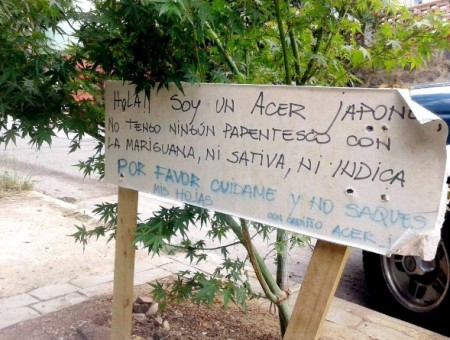 ¡HOLA!! SOY UN ACER JAPONÉS,
NO TENGO NINGÚN PARENTESCO CON
LA MARIGUANA, NI SATIVA, NI INDICA
POR FAVOR CUIDAME Y NO SAQUES
MIS HOJAS
CON CARIÑO ACER J.